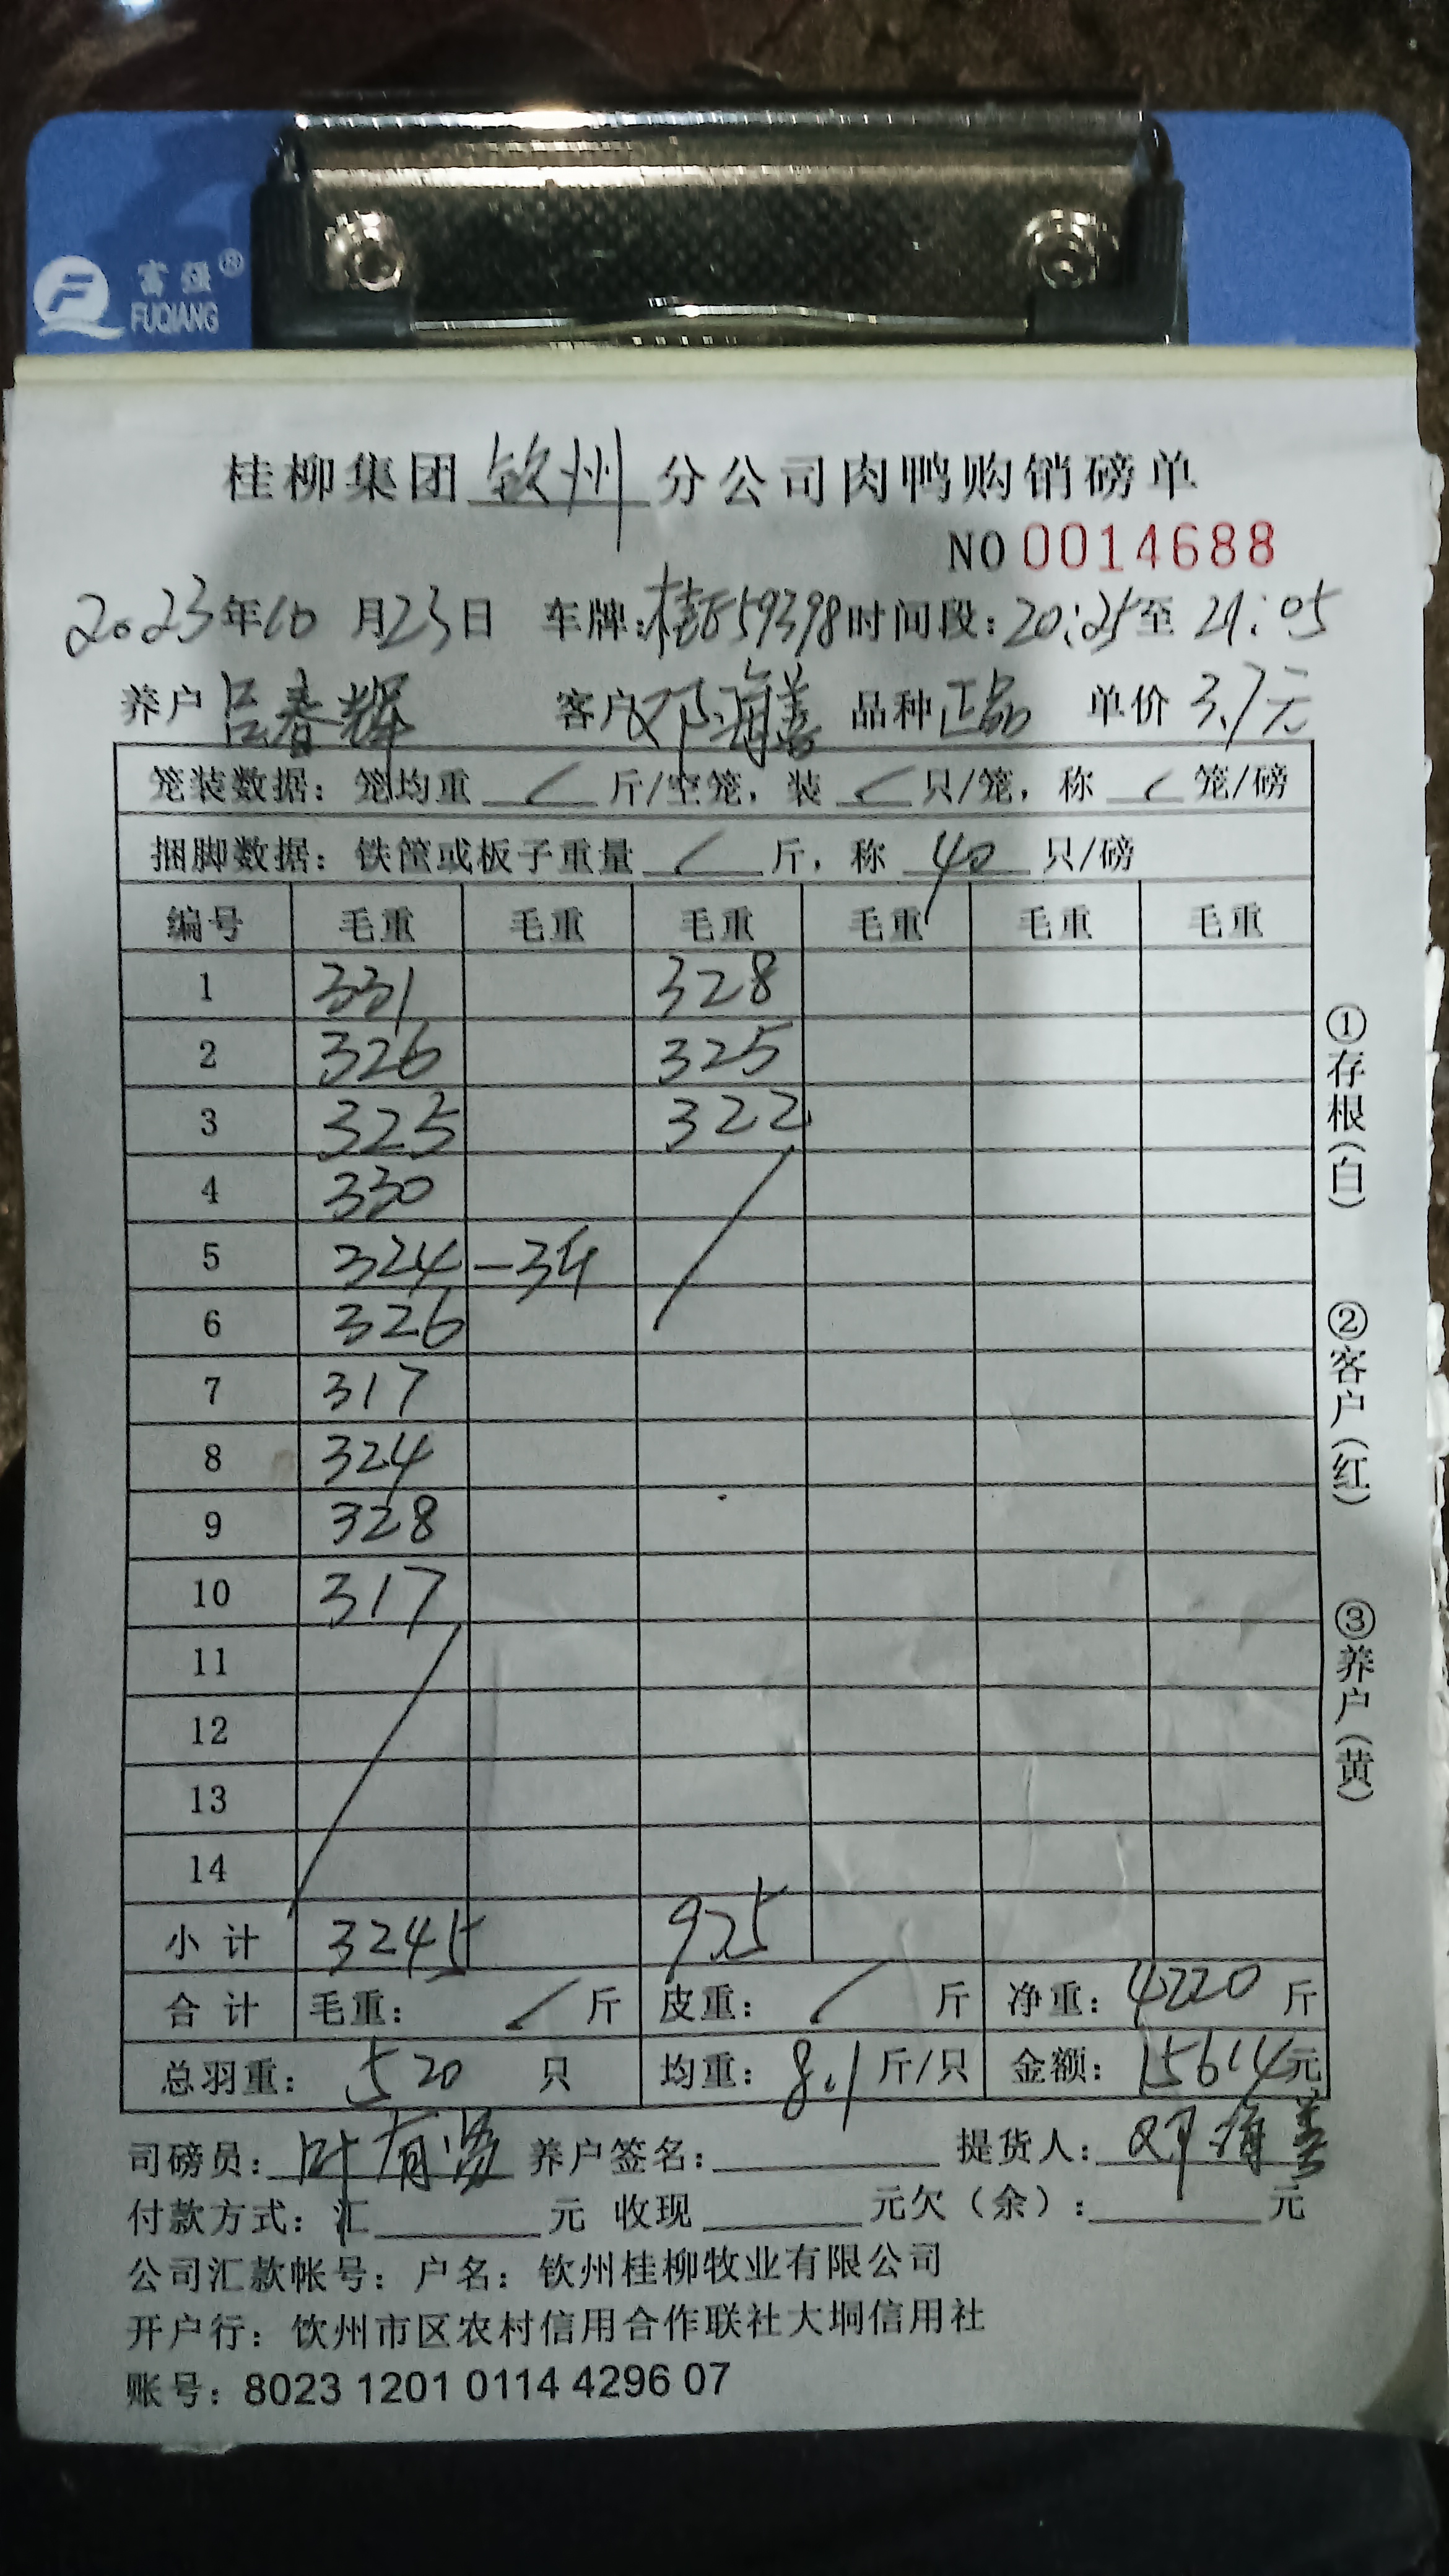 富强®
FUQIANG
桂柳集团钦州分公司肉鸭购销磅单
NO 0014688
2023年10月23日 车牌:桂F59398时间段:20:25至21:05
养户吕春辉 客户邓海善 品种正品 单价3.7元
笼装数据:笼均重 / 斤/空笼,装 / 只/笼,称 / 笼/磅
捆脚数据:铁筐或板子重量 / 斤,称 40 只/磅
编号 毛重 毛重 毛重 毛重 毛重 毛重
1 331 328
2 326 325
3 325 322
4 330
5 324 -3斤
6 326
7 317
8 324
9 328
10 317
11
12
13
14
小计 3245 975
合计 毛重: / 斤 皮重: / 斤 净重:4220斤
总羽重:520只 均重:8.1斤/只 金额:15614元
司磅员:叶有 养户签名: 提货人:邓海善
付款方式:汇 元 收现 元欠(余): 元
公司汇款帐号:户名:钦州桂柳牧业有限公司
开户行:钦州市区农村信用合作联社大垌信用社
账号:8023 1201 0114 4296 07
①存根(白)
②客户(红)
③养户(黄)